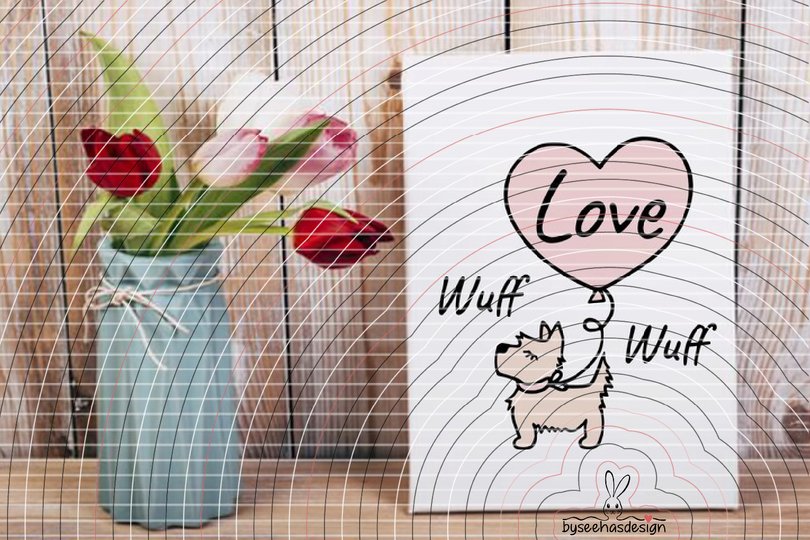 Love
Wuff
Wuff
byseehasdesign